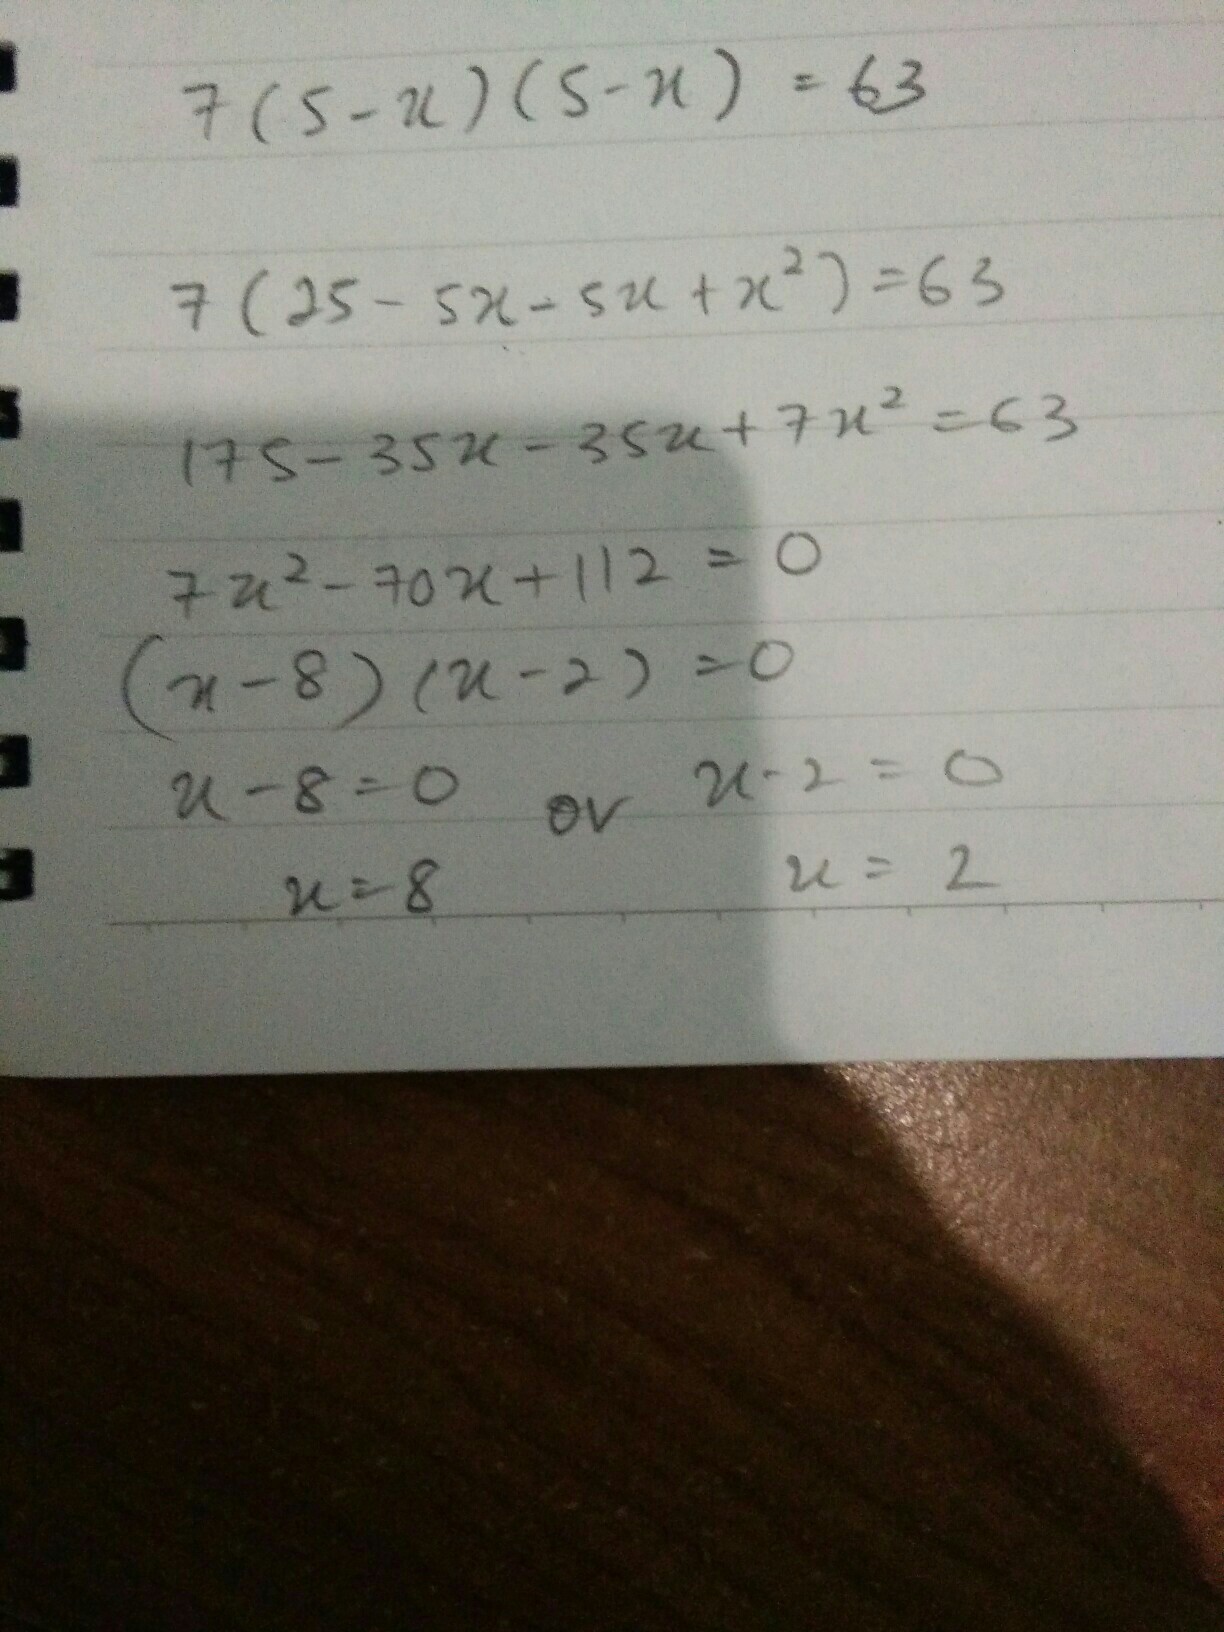 7(5-x)(5-x) = 63
7(25-5x-5x+x²)=63
175-35x-35x+7x²=63
7x²-70x+112=0
(x-8)(x-2)=0
x-8=0 or x-2=0
x=8 x=2